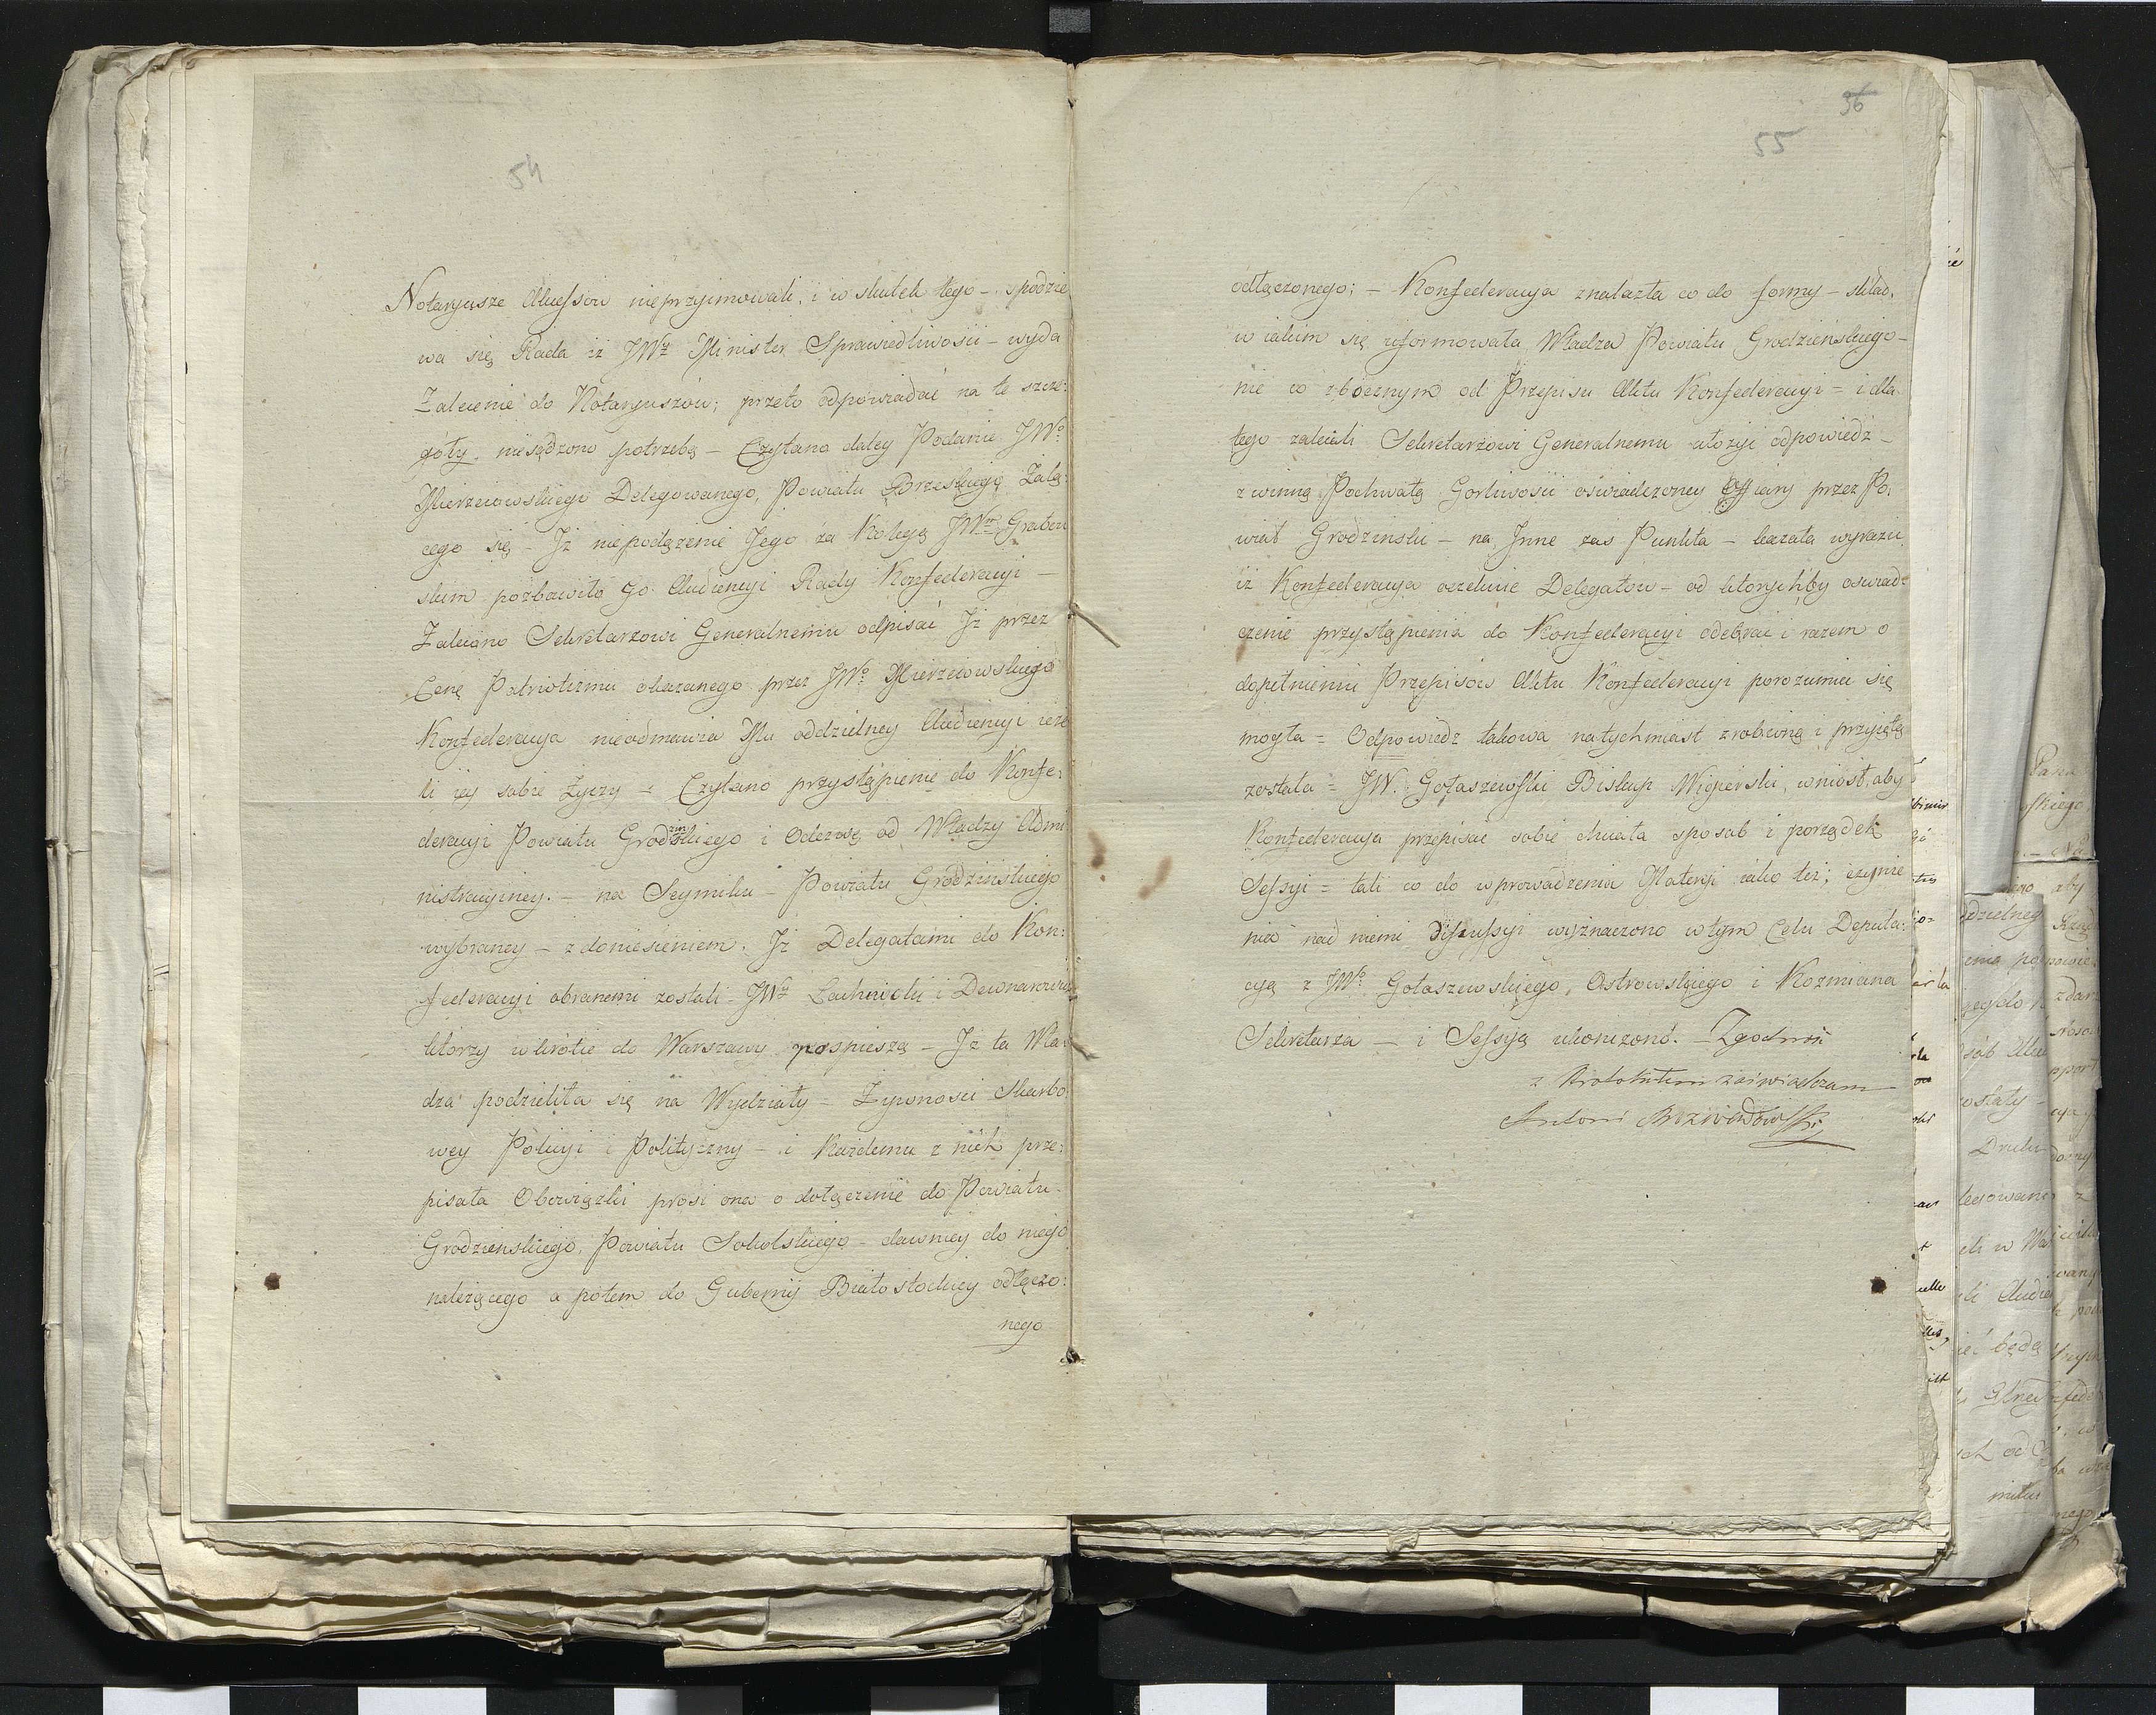 54
Notaryusze Akcessow nieprzyimowali, i w skutek tego – spodzie
wa się Rada iż JWż Minister Sprawiedliwości – wyda
Zalecenie do Notaryuszów; przeto odpowiadać na te szcze:
góły. niesądzono potrzebą – Czytano daley Podanie JWo
Mierzeiowskiego Delegowanego, Powiatu Brzeskiego Żalą:
cego się – Iż niepołączenie Jego za Kolegę JWm Grabow
skim pozbawiło go Audiencyi Rady Konfederacyi –
Zalecano Sekretarzowi Generalnemu odpisać Iż przez
Cenę Patriotizmu okazanego przez JWo Mierzeiowskiego
Konfederacya nieodmawia Mu oddzielney Audiencyi ieże
li iey sobie życzy = Czytano przystąpienie do Konfe:
deracyi Powiatu Grodzinskiego i Odezwę od Władzy Admi
nistracyiney. – na Seymiku – Powiatu Grodzinskiego
wybraney – z doniesieniem. Iż Delegatami do Kon:
federacyi obranemi zostali – JWż Lachnicki i
którzy wkrótce do Warszawy pospieszą – Iż ta Wła
dza podzieliła się na Wydziały = Żywności Skarbo
wey Policyi i Polityczny – i Każdemu z nich prze:
pisała Obowiązki prosi ona o dołączenie do Powiatu
Grodzienskiego, Powiatu Sokolskiego – dawniey do niego
należącego a potem do Gubernij Białostockiey odłączo:
nego
36
55
odłączonego; – Konfederacya znalazła co do formy – skład,
w iakim się uformowała Władza Powiatu Grodzienskiego –
nie co zbocznym od Przepisu Aktu Konfederacyi = i dla
tego zalecili Sekretarzowi Generalnemu ułożyć odpowiedź –
z winną Pochwałą Gorliwości oświadczoney Offiary przez Po:
wiat Grodzinski – na Inne zaś Punkta – kazała wyrazić
iż Konfederacya oczekuie Delegatów – od którychby oswiad:
czenie przystąpienia do Konfederacyi odebrać i razem o
dopełnieniu Przepisów Aktu Konfederacyi porozumieć się
mogła = Odpowiedź takowa natychmiast zrobioną i przyiętą
została = JW. Gołaszewski Biskup Wigierski, wniosł, aby
Konfederacya przepisać sobie chciała sposób i porządek
Sessyi = tak co do wprowadzenia Materyi iako też; czynie
nia nad niemi Diskussyi wyznaczono w tym Celu Deputa:
cyą z JWo Gołaszewskiego, Ostrowskiego i Kozmiana
Sekretarza – i Sessyą ukończono. – Zgodność
z Protokułem zaświadczam
Antoni Brzozowski